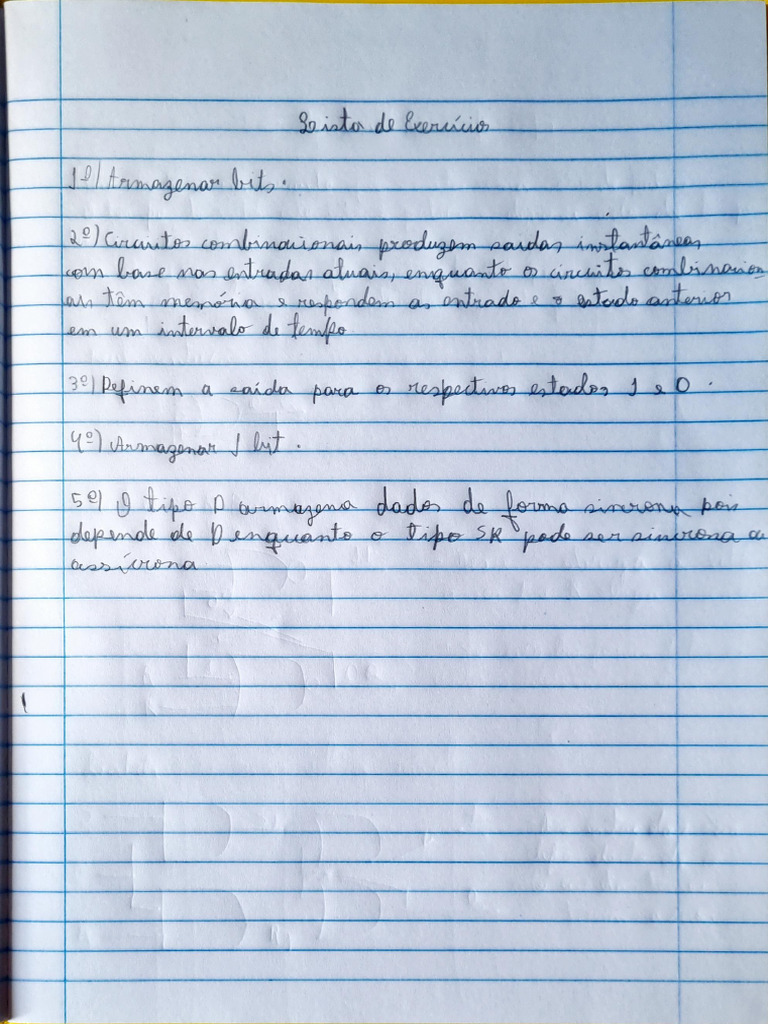 Lista de Exercícios
1º) Armazenar bits.
2º) Circuitos combinacionais produzem saídas instantâneas
com base nas entradas atuais, enquanto os circuitos combinacion-
ais têm memória e respondem as entrada e o estado anterior
em um intervalo de tempo
3º) Definem a saída para os respectivos estados 1 e 0.
4º) Armazenar 1 bit.
5º) O tipo D armazena dados de forma sincrona pois
depende de D enquanto o tipo SR pode ser sincrosa ou
assícrona